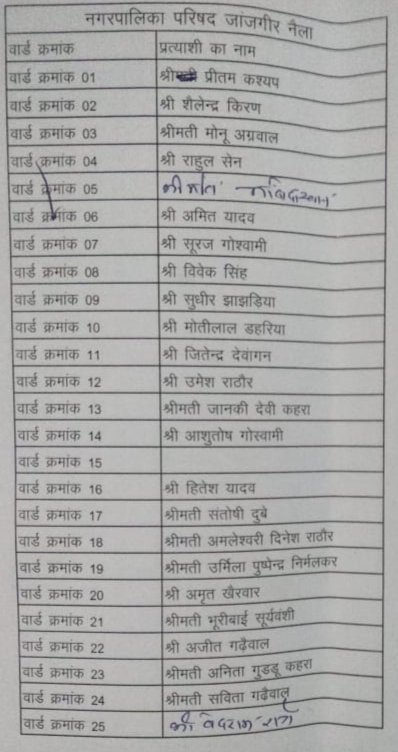 नगरपालिका परिषद जांजगीर नैला
वार्ड क्रमांक प्रत्याशी का नाम
वार्ड क्रमांक 01 श्री प्रीतम कश्यप
वार्ड क्रमांक 02 श्री शैलेन्द्र किरण
वार्ड क्रमांक 03 श्रीमती मोनू अग्रवाल
वार्ड क्रमांक 04 श्री राहुल सेन
वार्ड क्रमांक 05
वार्ड क्रमांक 06 श्री अमित यादव
वार्ड क्रमांक 07 श्री सूरज गोश्वामी
वार्ड क्रमांक 08 श्री विवेक सिंह
वार्ड क्रमांक 09 श्री सुधीर झाझड़िया
वार्ड क्रमांक 10 श्री मोतीलाल डहरिया
वार्ड क्रमांक 11 श्री जितेन्द्र देवांगन
वार्ड क्रमांक 12 श्री उमेश राठौर
वार्ड क्रमांक 13 श्रीमती जानकी देवी कहरा
वार्ड क्रमांक 14 श्री आशुतोष गोस्वामी
वार्ड क्रमांक 15
वार्ड क्रमांक 16 श्री हितेश यादव
वार्ड क्रमांक 17 श्रीमती संतोषी दुबे
वार्ड क्रमांक 18 श्रीमती अमलेश्वरी दिनेश राठौर
वार्ड क्रमांक 19 श्रीमती उर्मिला पुष्पेन्द्र निर्मलकर
वार्ड क्रमांक 20 श्री अमृत खैरवार
वार्ड क्रमांक 21 श्रीमती भूरीबाई सूर्यवंशी
वार्ड क्रमांक 22 श्री अजीत गढ़ैवाल
वार्ड क्रमांक 23 श्रीमती अनिता गुडडू कहरा
वार्ड क्रमांक 24 श्रीमती सविता गढ़ैवाल
वार्ड क्रमांक 25 श्री